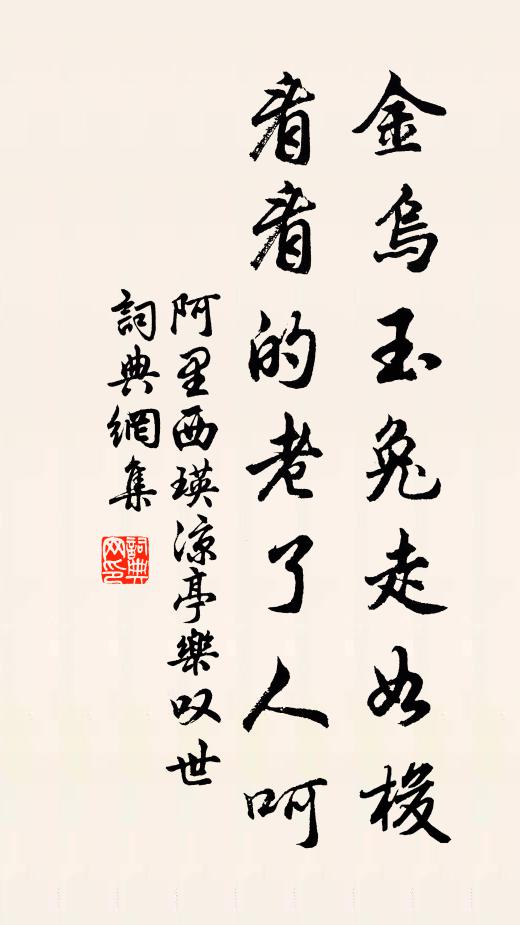 金烏玉兔走如梭
看看的老了人呵
阿里西瑛涼亭樂叹世
詞典網集
詞典网印